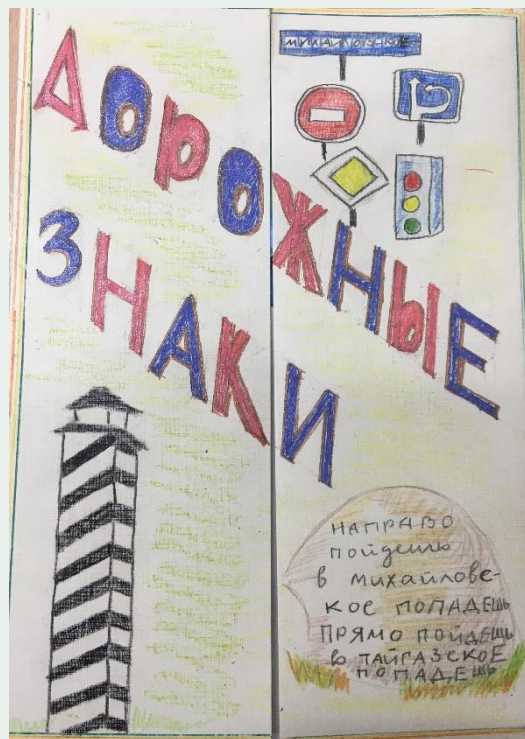 МИХАЙЛОВСКОЕ
ДОРОЖНЫЕ
ЗНАКИ
НАПРАВО
пойдешь
в михайловс-
кое ПОПАДЕШЬ
ПРЯМО ПОЙДЕШЬ
в ТАЙГАЗСКОЕ
ПОПАДЕШЬ